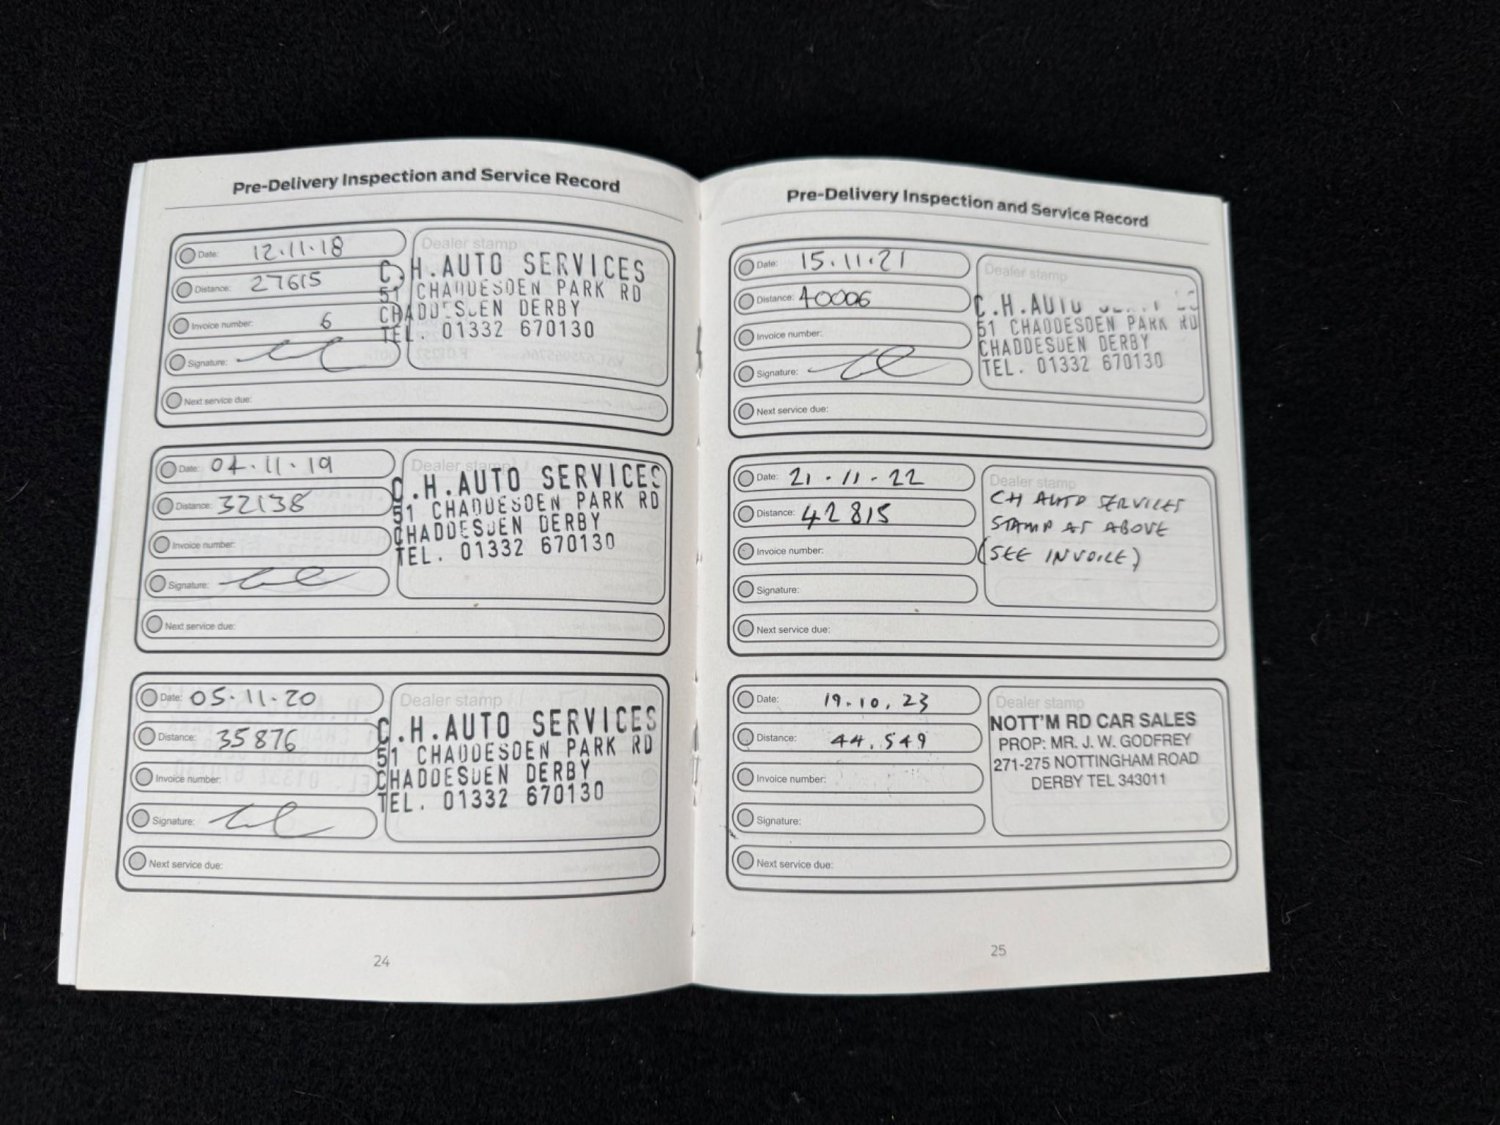 Pre-Delivery Inspection and Service Record
Date: 12.11.18
Distance: 27615
Invoice number: 6
Signature:
Next service due:
Dealer stamp
C.H.AUTO SERVICES
51 CHADDESDEN PARK RD
CHADDESDEN DERBY
TEL. 01332 670130
Date: 04.11.19
Distance: 32138
Invoice number:
Signature:
Next service due:
Dealer stamp
C.H.AUTO SERVICES
51 CHADDESDEN PARK RD
CHADDESDEN DERBY
TEL. 01332 670130
Date: 05.11.20
Distance: 35876
Invoice number:
Signature:
Next service due:
Dealer stamp
C.H.AUTO SERVICES
51 CHADDESDEN PARK RD
CHADDESDEN DERBY
TEL. 01332 670130
24
Pre-Delivery Inspection and Service Record
Date: 15.11.21
Distance: 40006
Invoice number:
Signature:
Next service due:
Dealer stamp
C.H.AUTO
51 CHADDESDEN PARK RD
CHADDESDEN DERBY
TEL. 01332 670130
Date: 21.11.22
Distance: 42815
Invoice number:
Signature:
Next service due:
Dealer stamp
CH AUTO SERVICES
STAMP AS ABOVE
(SEE INVOICE)
Date: 19.10.23
Distance: 44,549
Invoice number:
Signature:
Next service due:
Dealer stamp
NOTT'M RD CAR SALES
PROP: MR. J. W. GODFREY
271-275 NOTTINGHAM ROAD
DERBY TEL 343011
25